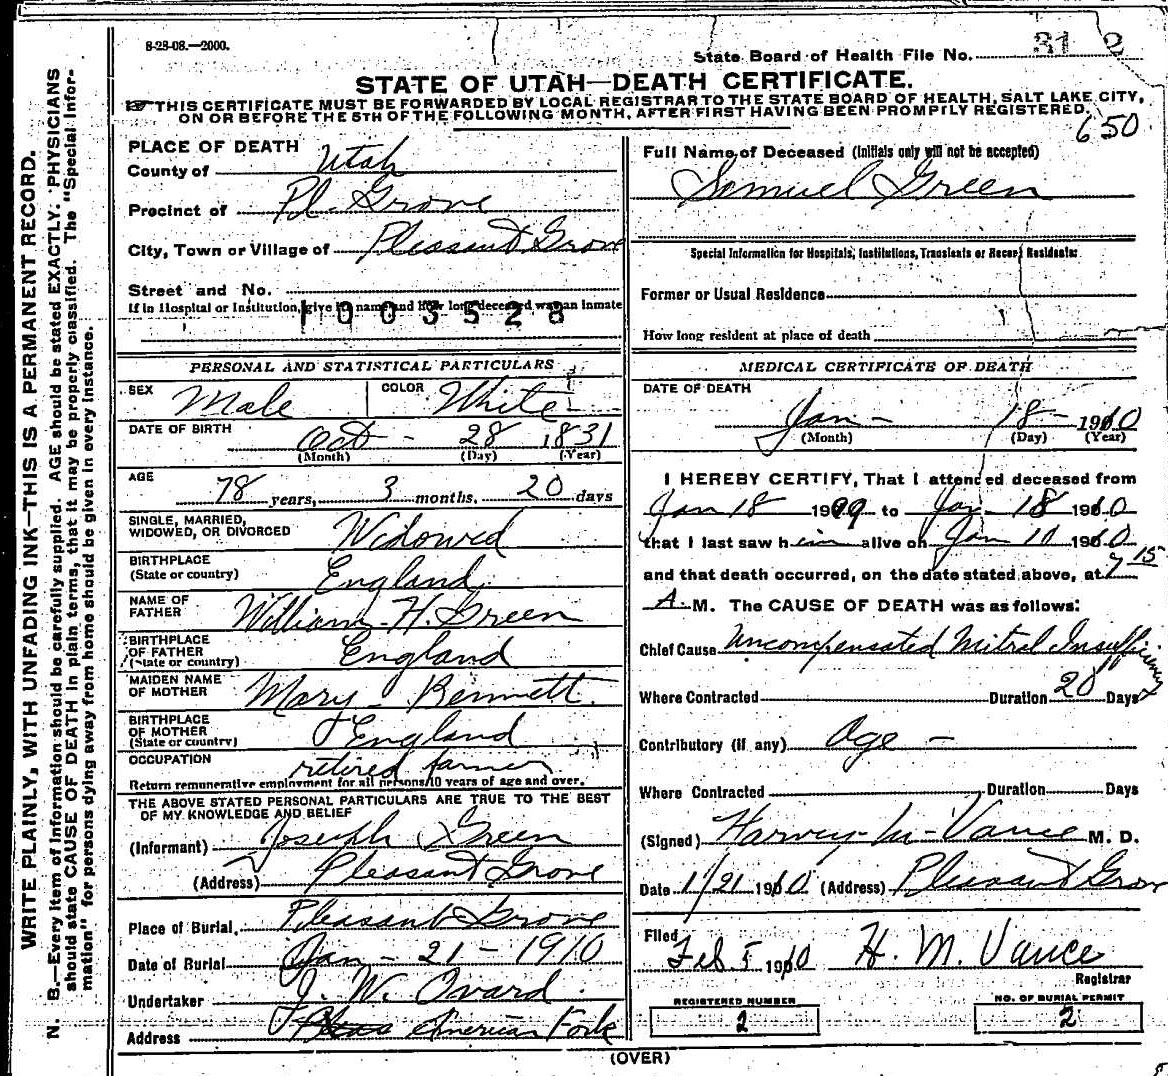 8-28-08.—2000.
State Board of Health File No. 31 2
STATE OF UTAH—DEATH CERTIFICATE.
THIS CERTIFICATE MUST BE FORWARDED BY LOCAL REGISTRAR TO THE STATE BOARD OF HEALTH, SALT LAKE CITY,
ON OR BEFORE THE 5TH OF THE FOLLOWING MONTH, AFTER FIRST HAVING BEEN PROMPTLY REGISTERED.
650
WRITE PLAINLY, WITH UNFADING INK—THIS IS A PERMANENT RECORD.
N. B.—Every item of information should be carefully supplied. AGE should be stated EXACTLY. PHYSICIANS
should state CAUSE OF DEATH in plain terms, that it may be properly classified. The "Special Infor-
mation" for persons dying away from home should be given in every instance.
PLACE OF DEATH
County of Utah
Precinct of Pl. Grove
City, Town or Village of Pleasant Grove
Street and No.
If in Hospital or Institution, give its name and how long deceased was an inmate
1003528
PERSONAL AND STATISTICAL PARTICULARS
SEX Male COLOR White
DATE OF BIRTH Oct - 28 1831
(Month) (Day) (Year)
AGE 78 years, 3 months, 20 days
SINGLE, MARRIED,
WIDOWED, OR DIVORCED Widowed
BIRTHPLACE
(State or country) England
NAME OF
FATHER William H. Green
BIRTHPLACE
OF FATHER
(State or country) England
MAIDEN NAME
OF MOTHER Mary Bennett
BIRTHPLACE
OF MOTHER
(State or country) England
OCCUPATION retired farmer
Return remunerative employment for all persons 10 years of age and over.
THE ABOVE STATED PERSONAL PARTICULARS ARE TRUE TO THE BEST
OF MY KNOWLEDGE AND BELIEF
(Informant) Joseph Green
(Address) Pleasant Grove
Place of Burial, Pleasant Grove
Date of Burial Jan - 21 - 1910
Undertaker J. W. Ovard
Address American Fork
Full Name of Deceased (initials only will not be accepted)
Samuel Green
Special Information for Hospitals, Institutions, Transients or Recent Residents:
Former or Usual Residence
How long resident at place of death
MEDICAL CERTIFICATE OF DEATH
DATE OF DEATH
Jan - 18 - 1910
(Month) (Day) (Year)
I HEREBY CERTIFY, That I attended deceased from
Jan 18 1909 to Jan 18 1910
that I last saw him alive on Jan 10 1910
and that death occurred, on the date stated above, at 7 15
A. M. The CAUSE OF DEATH was as follows:
Chief Cause Uncompensated Mitral Insufficiency
Where Contracted Duration 20 Days
Contributory (if any) Age -
Where Contracted Duration Days
(Signed) Harvey M. Vance M. D.
Date 1/21 1910 (Address) Pleasant Grove
Filed
Feb. 5 1910 H. M. Vance
Registrar
REGISTERED NUMBER
2
NO. OF BURIAL PERMIT
2
(OVER)